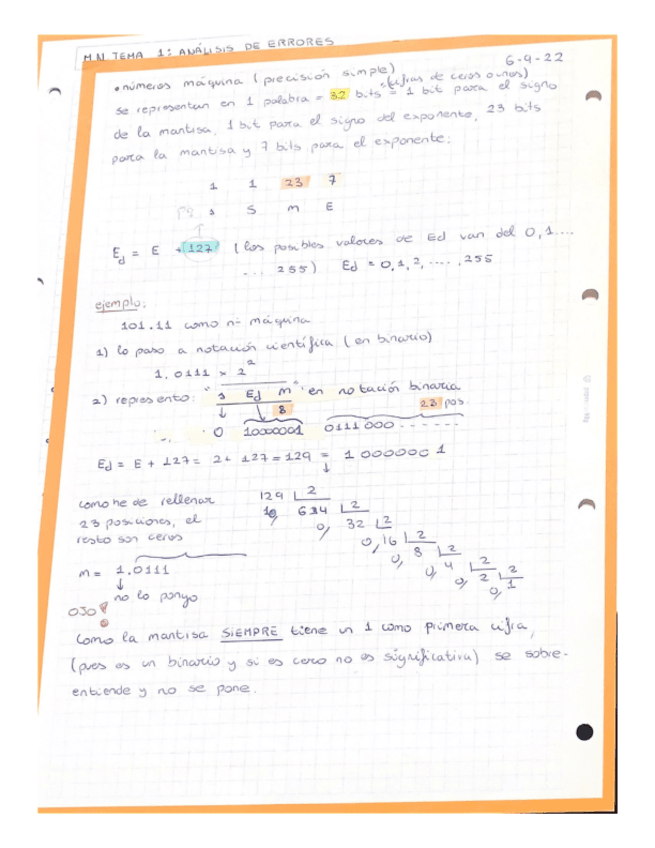 M.N TEMA 1: ANÁLISIS DE ERRORES
6-9-22
• números máquina (precisión simple)
(cifras de ceros o unos)
se representan en 1 palabra = 32 bits = 1 bit para el signo
de la mantisa, 1 bit para el signo del exponente, 23 bits
para la mantisa y 7 bits para el exponente:
1 1 23 7
s S m E
Ed = E + 127 (los posibles valores de Ed van del 0, 1....
... 255) Ed = 0, 1, 2, ...., 255
ejemplo:
101.11 como nº máquina
1) lo paso a notación científica (en binario)
1.0111 × 2²
2) represento: "s Ed m" en notación binaria
8 23 pos.
0 10000001 0111000 ......
Ed = E + 127 = 2 + 127 = 129 = 1000000 1
como he de rellenar
23 posiciones, el
resto son ceros
129 2
64 2
0, 32 2
0, 16 2
0, 8 2
0, 4 2
0, 2 2
0, 1
m = 1.0111
no lo pongo
OJO!
Como la mantisa SIEMPRE tiene un 1 como primera cifra,
(pues es un binario y si es cero no es significativa) se sobre-
entiende y no se pone.